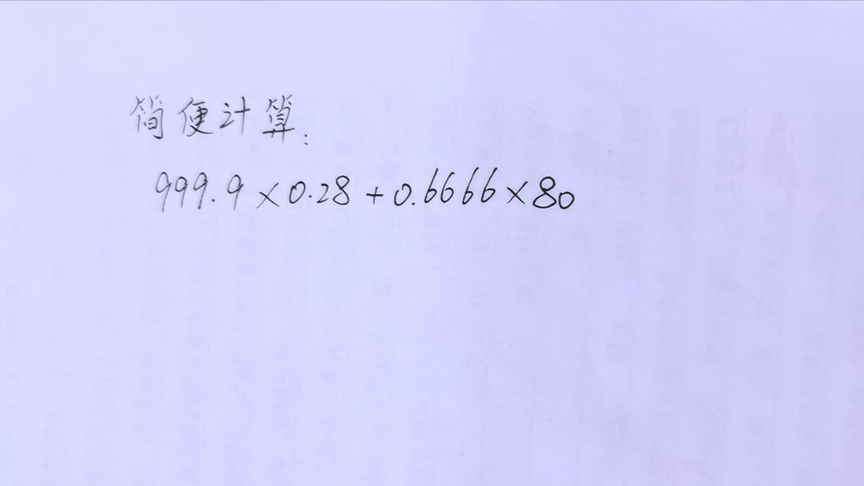 简便计算:
999.9×0.28+0.6666×80